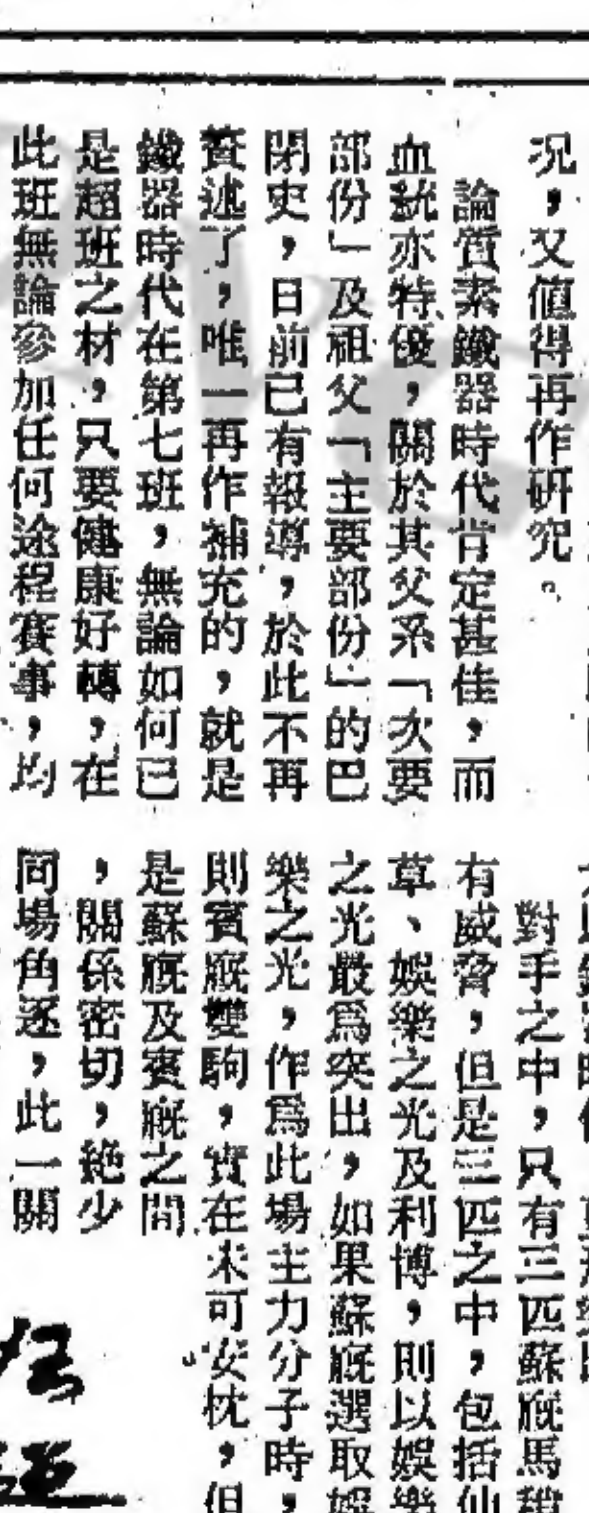 況，又值得再作研究。
論質素鐵器時代肯定甚佳，而
血統亦特優，關於其父系「次要
部份」及祖父「主要部份」的巴
閉史，日前已有報導，於此不再
贅述了，唯一再作補充的，就是
鐵器時代在第七班，無論如何已
是超班之材，只要健康好轉，在
此班無論參加任何途程賽事，均
對手之中，只有三匹蘇廐馬稍
有威脅，但是三匹之中，包括仙
草、娛樂之光及利博，則以娛樂
之光最爲突出，如果蘇廐選取娛
樂之光，作爲此場主力分子時，
則賓廐雙駒，實在未可安枕，但
是蘇廐及賓廐之間
，關係密切，絶少
同場角逐，此一關